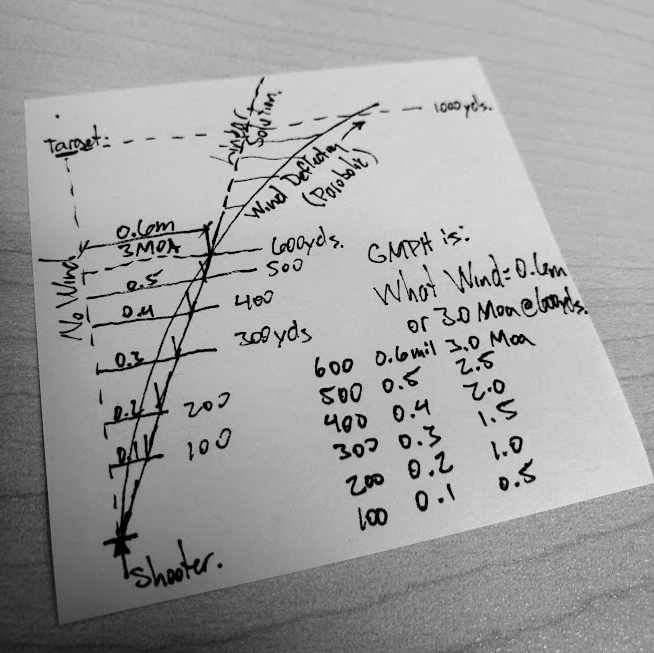 Target:
Linear
Solution.
1000yds.
Wind Deflection
(Parobolic)
No Wind.
0.6m
3 MOA
600yds.
0.5
500
0.4
400
0.3
300yds
0.2
200
0.1
100
Shooter.
GMPH is:
What Wind = 0.6m
or 3.0 Moa@600yds.
600 0.6mil 3.0 Moa
500 0.5 2.5
400 0.4 2.0
300 0.3 1.5
200 0.2 1.0
100 0.1 0.5